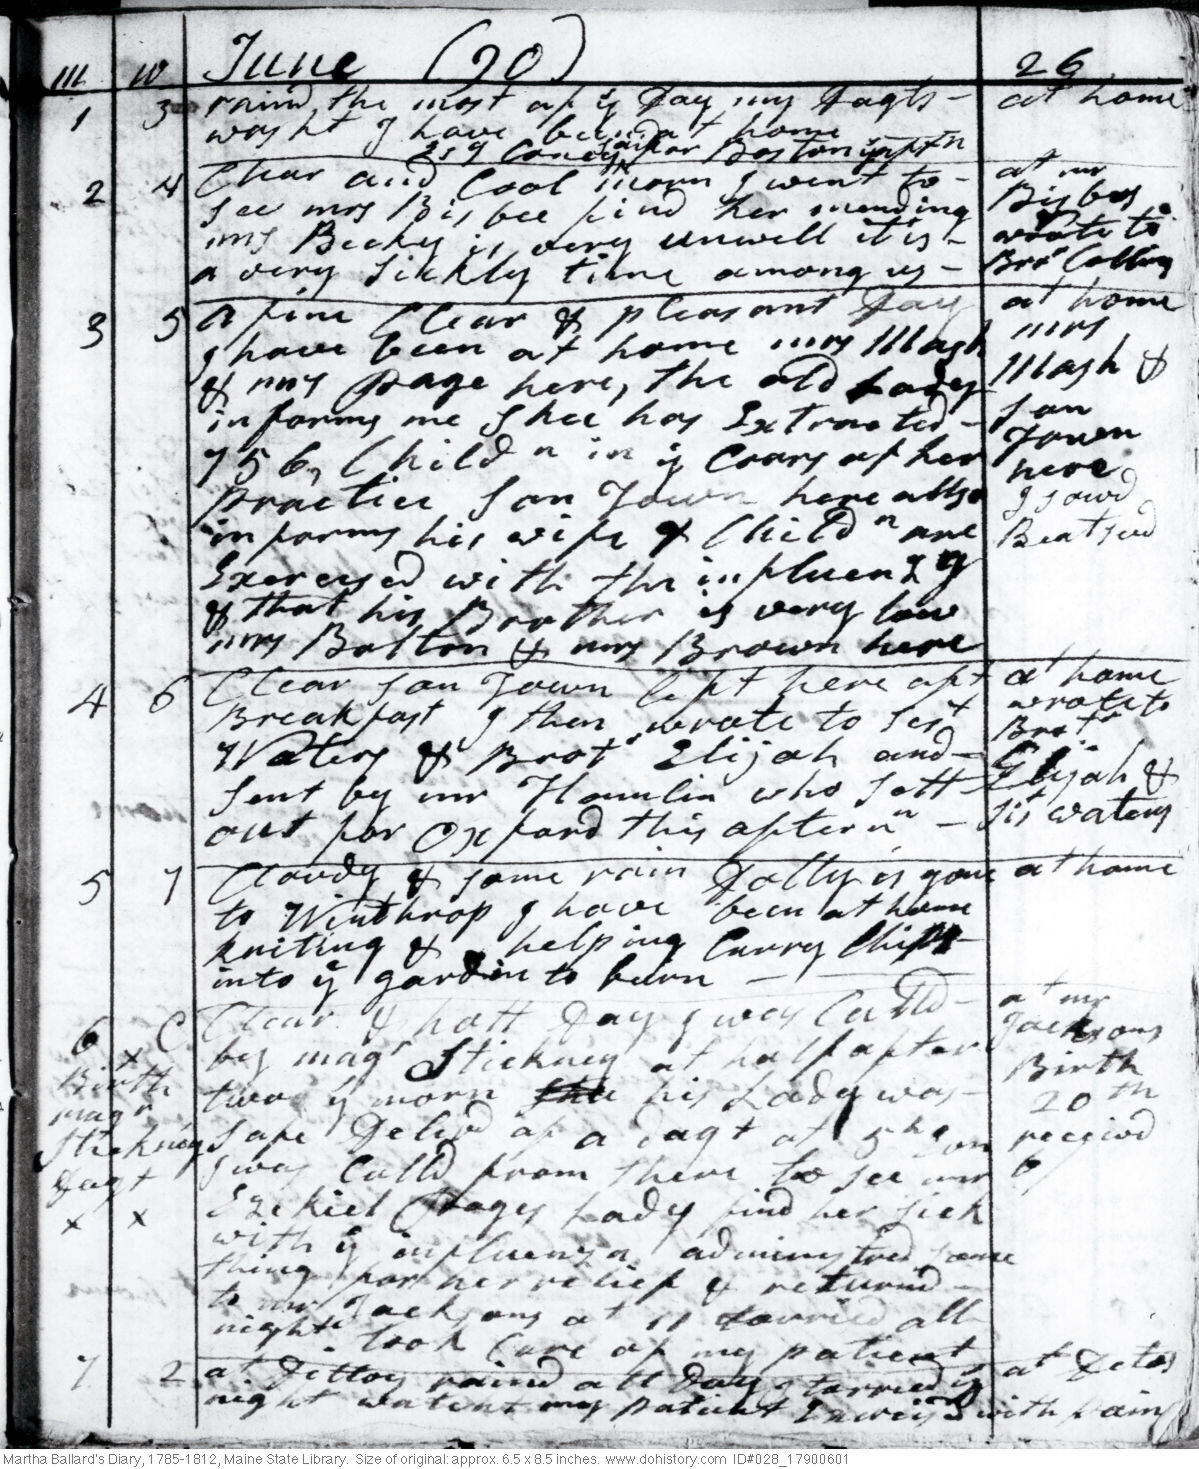 m w June (90) 26
1 3 raind the most of ye Day my Dagts at home
washt I have been at home
Clear and Cool morn I went to
2 4 see mrs Bisbee find her mending
at mr Bisbes
mrs Becky is very unwell it is
wrote to
a very sickly time among us
Bror Collins
3 5 a fine Clear & pleasant Day
at home
I have been at home mrs Mash
mrs
& mrs Page here, the old Lady
Mash &
informs me Shee has Extracted
son
756, Childn in ye Coars of her
Town
practice son Town here allso
here
informs his wife & Childn are
I sowd
Exercised with the influenzy
Beat seed
& that his Brother is very low
mrs Bolton & mrs Brown here
4 6 Clear son Town left here aft
at home
Breakfast I then wrote to Sist
wrote to
Waters & Brot Elijah and
Brotr
sent by mr Hamlin who sett
Elijah &
out for Oxford this aftern n
sist waters
5 7 Cloudy & some rain Dolly is gone
at home
to Winthrop I have been at home
kniting & helping Carry Chips
into ye gardin to burn
6 C Clear & hott Day I was Calld
at mr
by magr Stickney at half after
Jacksons
Birth
two ye morn his Lady was
Birth
magr
safe Delivd of a dagt at 5 h on
20th
Stickneys
I was Calld from there to see mr
receivd
Dagt
Ezekiel Pages Lady find her sick
6/
x x
with ye influenza adminystred some
thing for her relief & returnd
to mr Jacksons at 11 tarried all
night took Care of my patient
7 2 at Dittoy raind all Day I tarried ye
at Detos
night watcht my patient
with pain